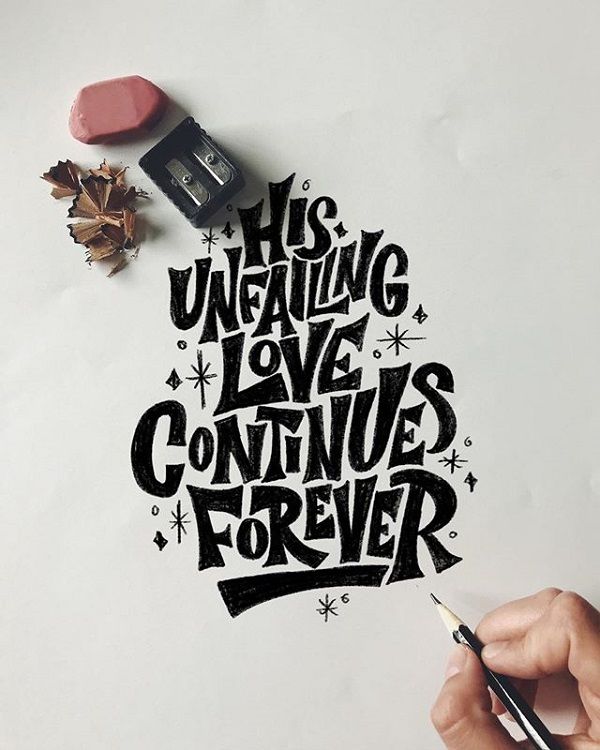 HIS
UNFAILING
LOVE
CONTINUES
FOREVER